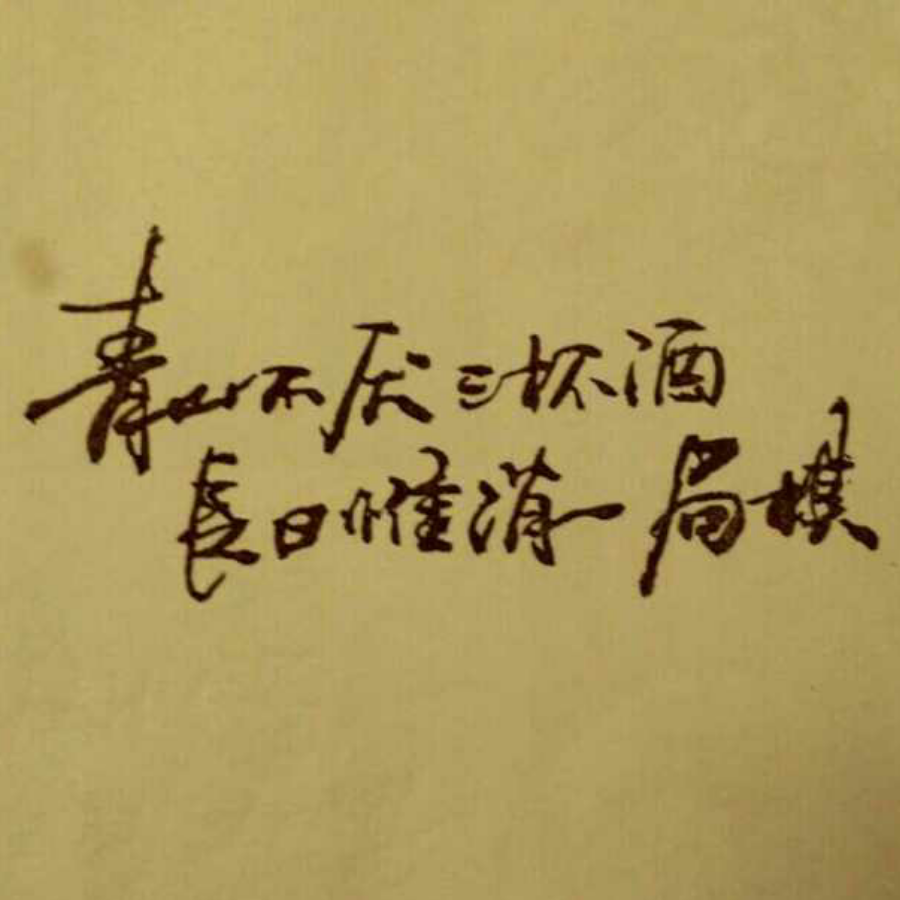 青山不厌三杯酒
長日惟消一局棋